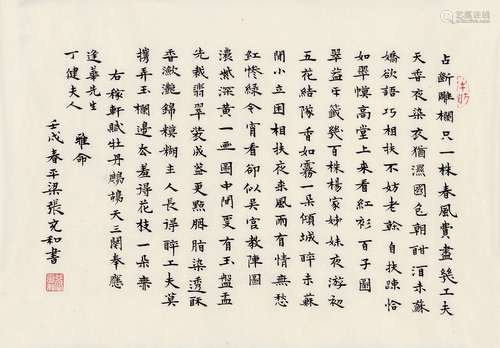 占斷雕欄只一株春風費盡幾工夫
天香夜染衣猶濕國色朝酣酒未蘇
嬌欲語巧相扶不妨老榦自扶疎恰
如翠幙高堂上来看紅衫百子圖
翠蓋牙籤幾百株楊家姊妹夜游初
五花結隊香如霧一朵傾城醉未蘇
閒小立困相扶夜来風雨有情無愁
紅慘綠今宵看卻似吳宮教陣圖
濃紫深黃一畫圖中間更有玉盤盂
先裁翡翠裝成蓋更點胭脂染透酥
香瀲灩錦糢糊主人長得醉工夫莫
攜弄玉欄邊去羞得花枝一朵無
右稼軒賦牡丹鷓鴣天三闋奉應
逢華先生
丁健夫人
雅命
壬戌春平梁張充和書